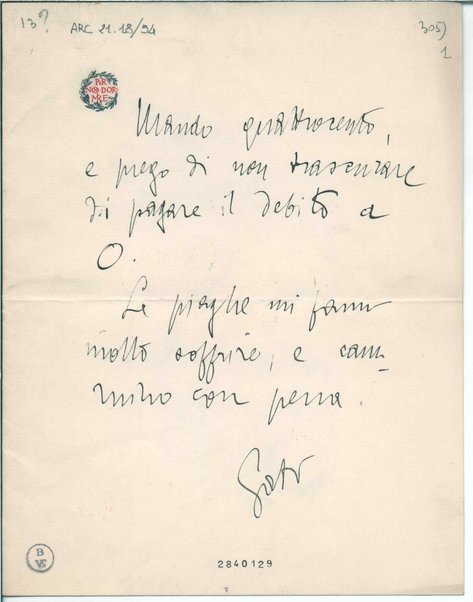 13?
ARC 21.18/54
305)
1
PER
NON DOR
MIRE
Mando quattrocento,
e prego di non trascurare
di pagare il debito a
O.
Le piaghe mi fanno
molto soffrire, e cam-
mino con pena.
BVE
2840129